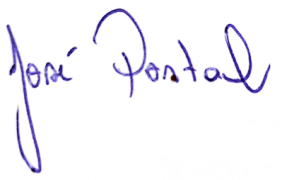 José Postal